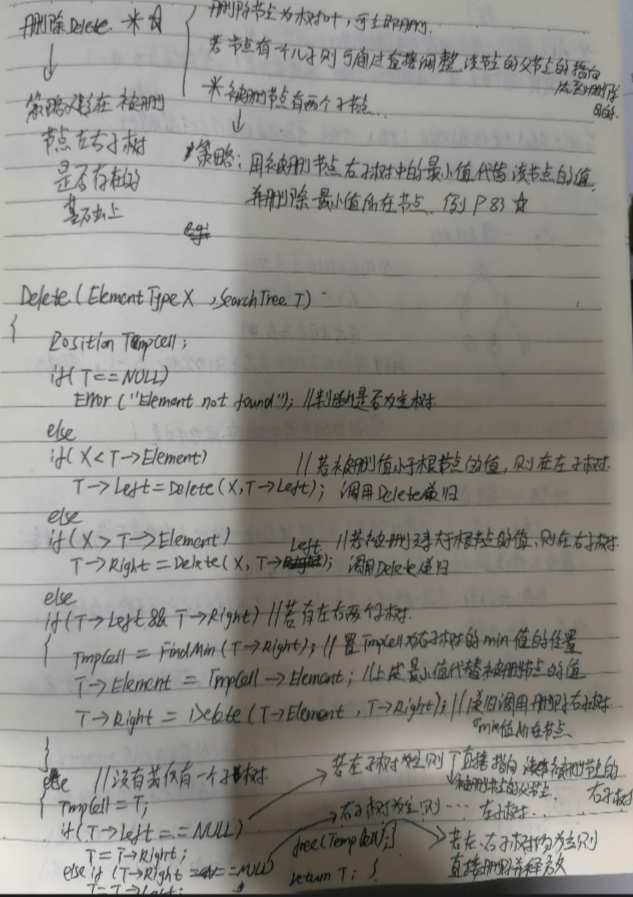 删除Delete ※☆
删除节点为树叶,可立即删.
若节点有一个儿子则可通过直接调整该节点的父节点的指向
达到删除目的.
※被删节点有两个子节点.
策略建在被删
节点左右子树
是否存在的
基础上
策略:用被删节点右子树中的最小值代替该节点的值
并删除最小值所在节点. 例P83 ☆
eg:
Delete(ElementType X, SearchTree T)
{
Position TmpCell;
if(T==NULL)
Error("Element not found"); //判断是否为空树.
else
if(X<T→Element) //若被删值小于根节点的值,则在左子树.
T→Left=Delete(X,T→Left); 调用Delete递归
else
if(X>T→Element) //若被删大于根节点的值,则在右子树
T→Right=Delete(X,T→Left); 调用Delete递归
else
if(T→Left&&T→Right) //若存左右两个子树.
{ TmpCell=FindMin(T→Right); //置TmpCell为右子树的min值的位置
T→Element=TmpCell→Element; //上述最小值代替被删节点的值
T→Right=Delete(T→Element,T→Right); //递归调用删除右子树
min值所在节点.
}
else //没有或仅有一个子树.
{ TmpCell=T;
if(T→Left==NULL)
T=T→Right;
else if(T→Right==NULL)
T=T→Left;
若左子树为空则直接指向被删节点的
右子树
被删节点的父节点
右子树为空则……左子树.
free(TempCell);}
return T; }
若左、右子树均为空则
直接删除并释放